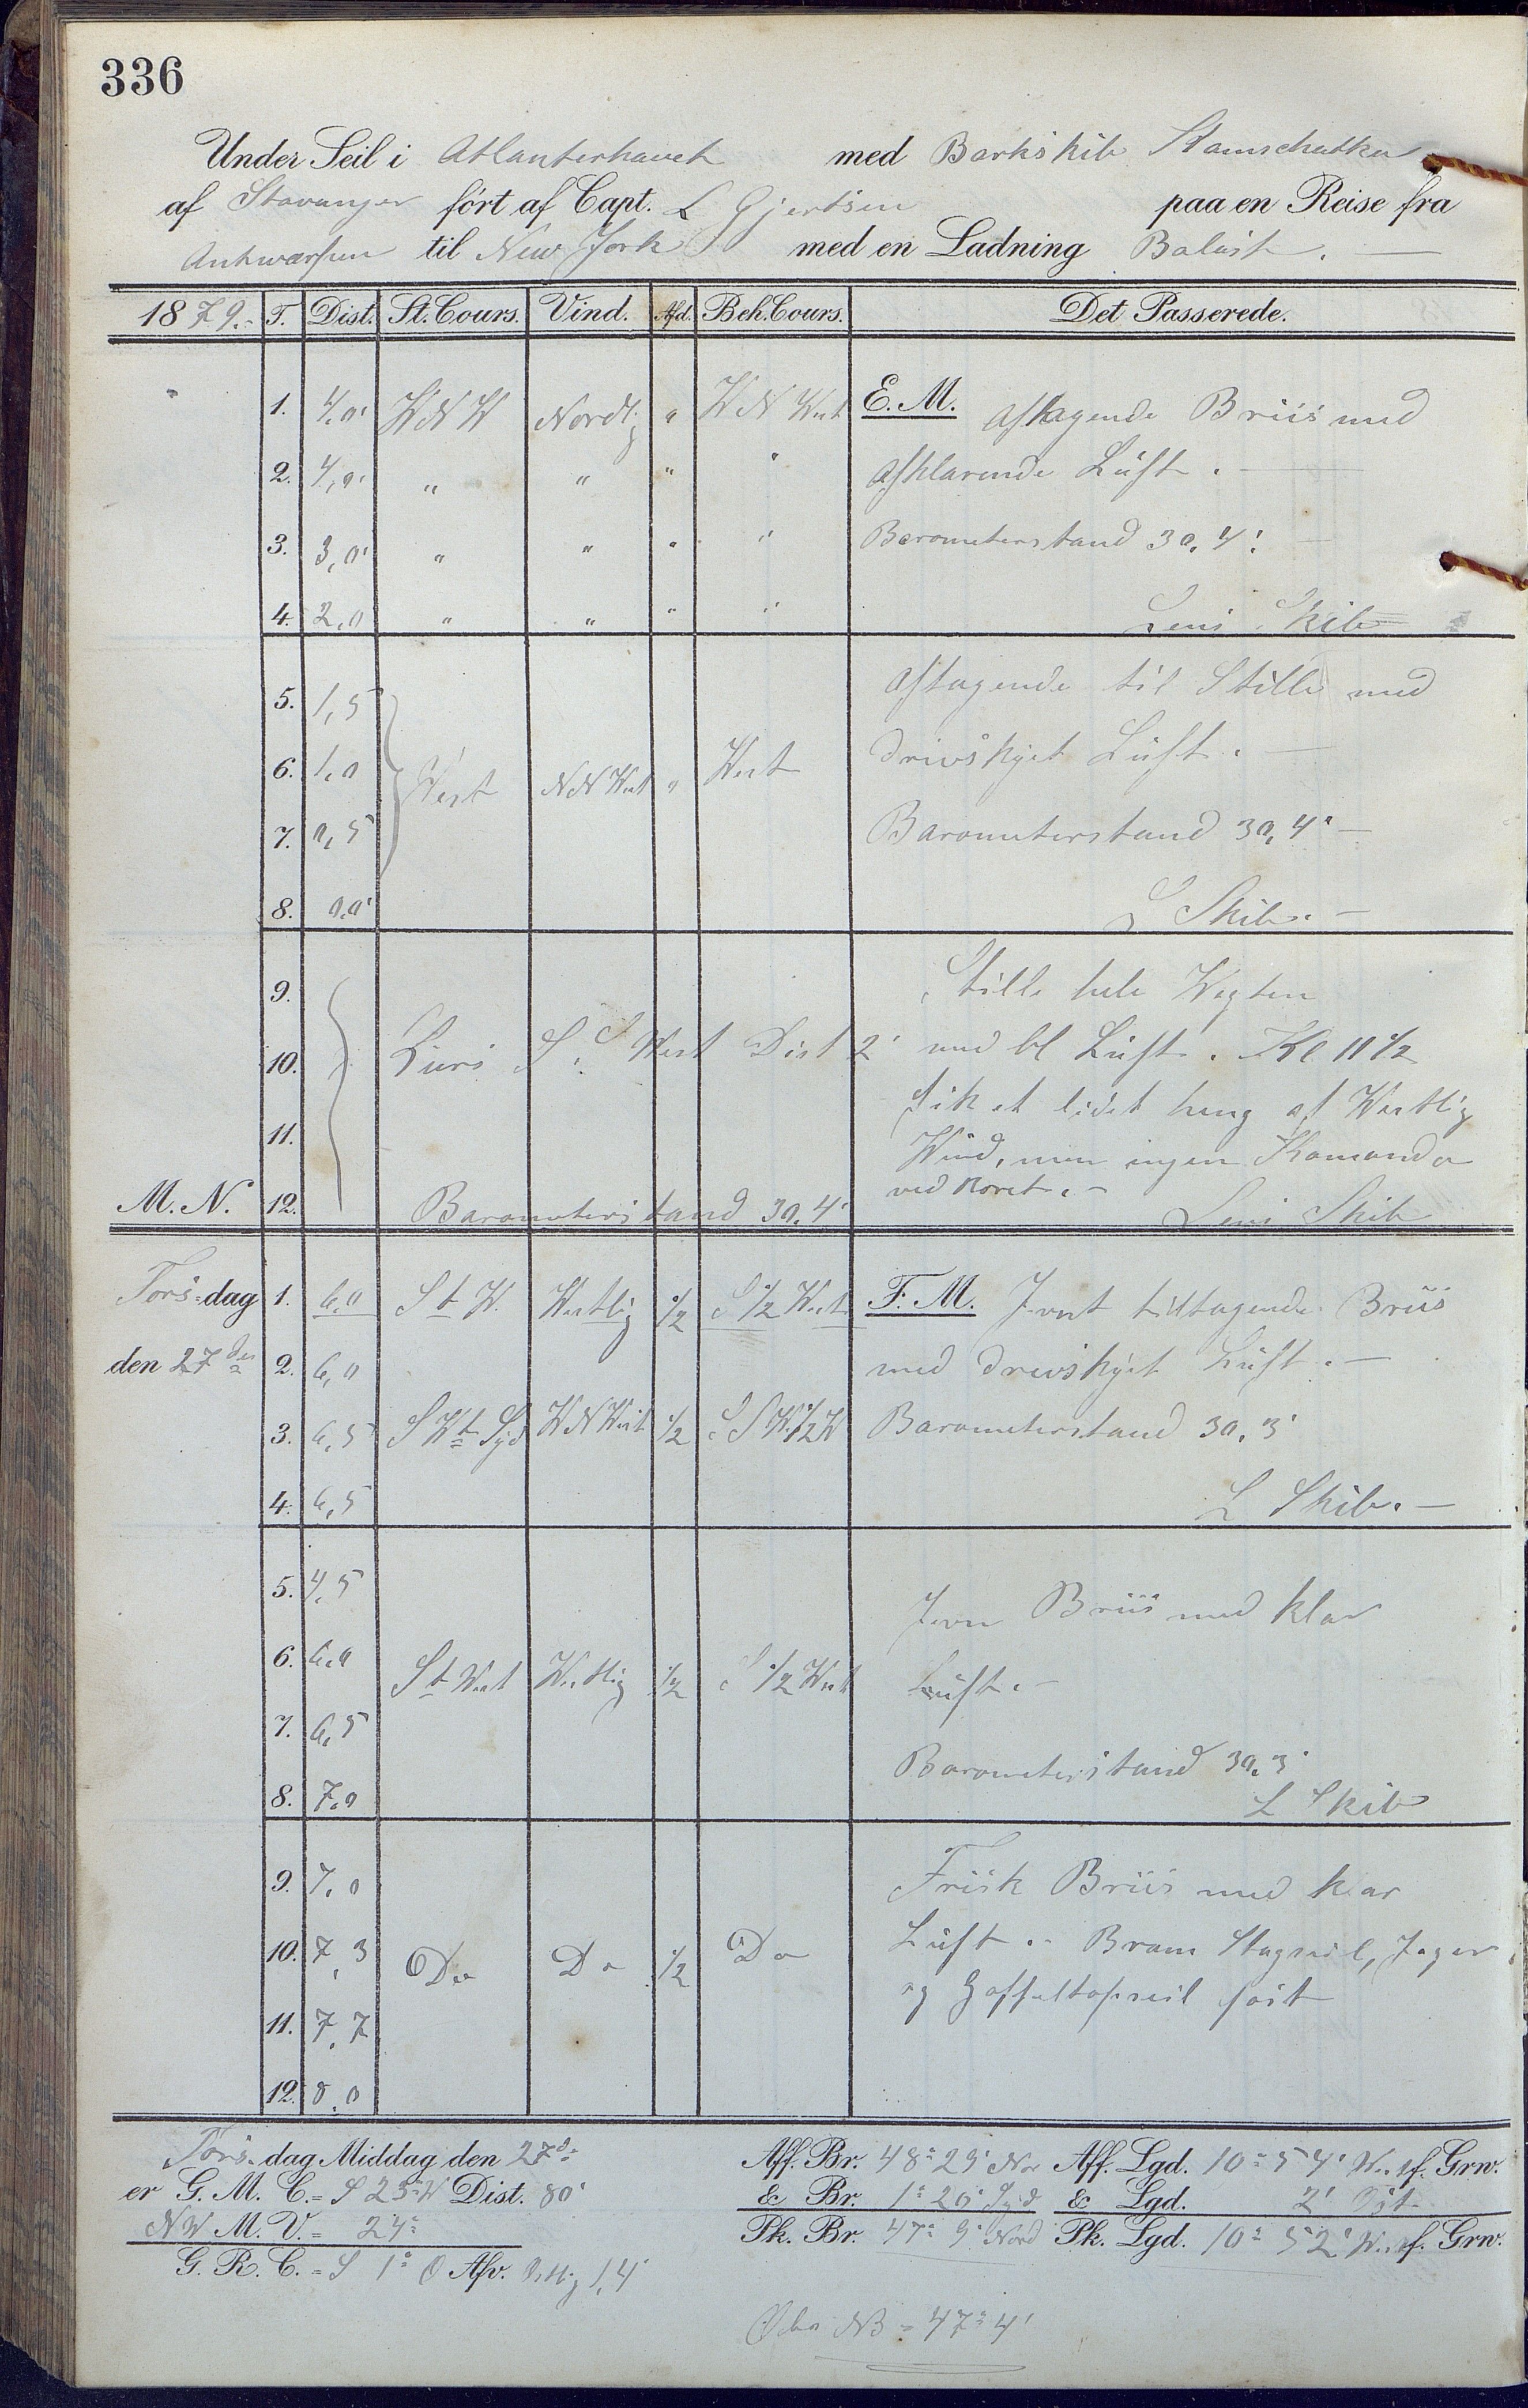 336
Under Seil i Atlanterhavet med Barkskib Kamschatka
af Stavanger ført af Capt. L Gjertsen paa en Reise fra
Antwerpen til New York med en Ladning Balast. —
1879. T. Dist. St. Cours. Vind. Afd. Beh. Cours. Det Passerede.
1. 4,0' WNW Nordlig " WN West E. M. Aftagende Briis med
2. 4,0' " " " " Afklarende Luft. —
3. 3,0' " " " " Barometerstand 30.4'. —
4. 2,0 " " " " Lens Skib
5. 1,5 Aftagende til Stille med
6. 1,0 West NNWest " West Drivskyet Luft. —
7. 0,5 Barometerstand 30,4' —
8. 0,0' L Skib. —
9. Stille hele Vagten
10. Kurs S. S West Dist 2' med bl Luft. Kl 11 1/2
11. fik et lidet heng af Westlig
Wind, men ingen Komando
M. N. 12. Barometerstand 30.4' ved Roret. — Lens Skib
Tors-dag 1. 6,0 St W. Westlig 1/2 S 1/2 West F. M. Jevnt tiltagende Briis
den 27de 2. 6,0 med drivskyet Luft. —
3. 6,5 S Wt Syd WNWest 1/2 SSW 1/2 W Barometerstand 30.3'
4. 6,5 L Skib. —
5. 4,5 Jevn Briis med klar
6. 6,0 St West Westlig 1/2 S 1/2 West Luft. —
7. 6,5 Barometerstand 30.3'
8. 7,0 L Skib
9. 7,0 Frisk Briis med klar
10. 7,3 Do Do 1/2 Do Luft. - Bram Stagseil, Jager
11. 7,7 og Gaffeltopseil fast
12. 8,0
Tors-dag Middag den 27de Aff. Br. 48° 29' No Aff. Lgd. 10° 54' W. af. Grw.
er G. M. C. = S 25° W Dist. 80' & Br. 1° 20' Syd & Lgd. 2' Øst
NW M. V. = 24° Pk. Br. 47° 9' Nord Pk. Lgd. 10° 52' W. af. Grw.
G. R. C. = S 1° O Afv. Østlig 1,4'
Obs NB = 47° 4'